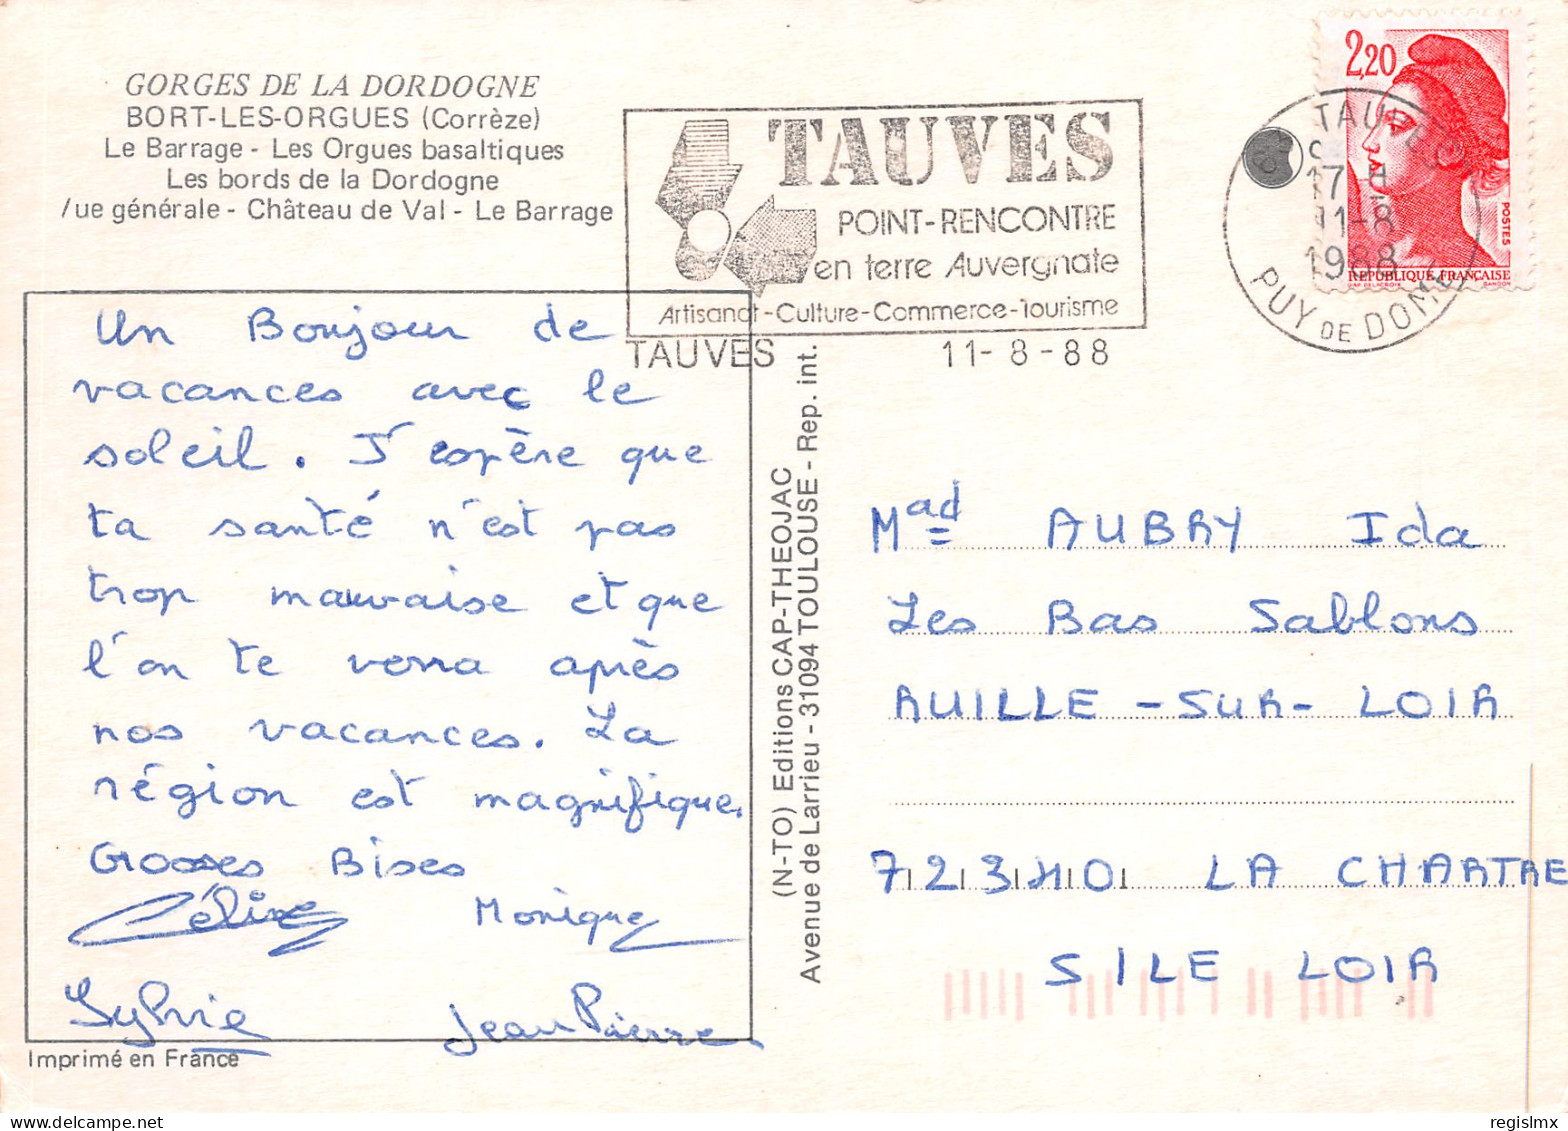 GORGES DE LA DORDOGNE
BORT-LES-ORGUES (Corrèze)
Le Barrage - Les Orgues basaltiques
Les bords de la Dordogne
/ue générale - Château de Val - Le Barrage
TAUVES
POINT-RENCONTRE
en terre Auvergnate
Artisanat-Culture-Commerce-Tourisme
TAUVES 11-8-88
2,20
POSTES
REPUBLIQUE FRANÇAISE
D'AP DELACROIX GANDON
TAUVES
17 H
11-8
1988
PUY DE DOME
Un Bonjour de
vacances avec le
soleil. J'espère que
ta santé n'est pas
trop mauvaise et que
l'on te verra après
nos vacances. La
région est magnifique.
Grosses Bises
Céline Monique
Sylvie Jean Pierre
Imprimé en France
(N-TO) Editions CAP-THEOJAC
Avenue de Larrieu - 31094 TOULOUSE - Rep. int.
Mad AUBRY Ida
Les Bas Sablons
RUILLE-SUR-LOIR
72340 LA CHARTRE
S/LE LOIR
regislmx